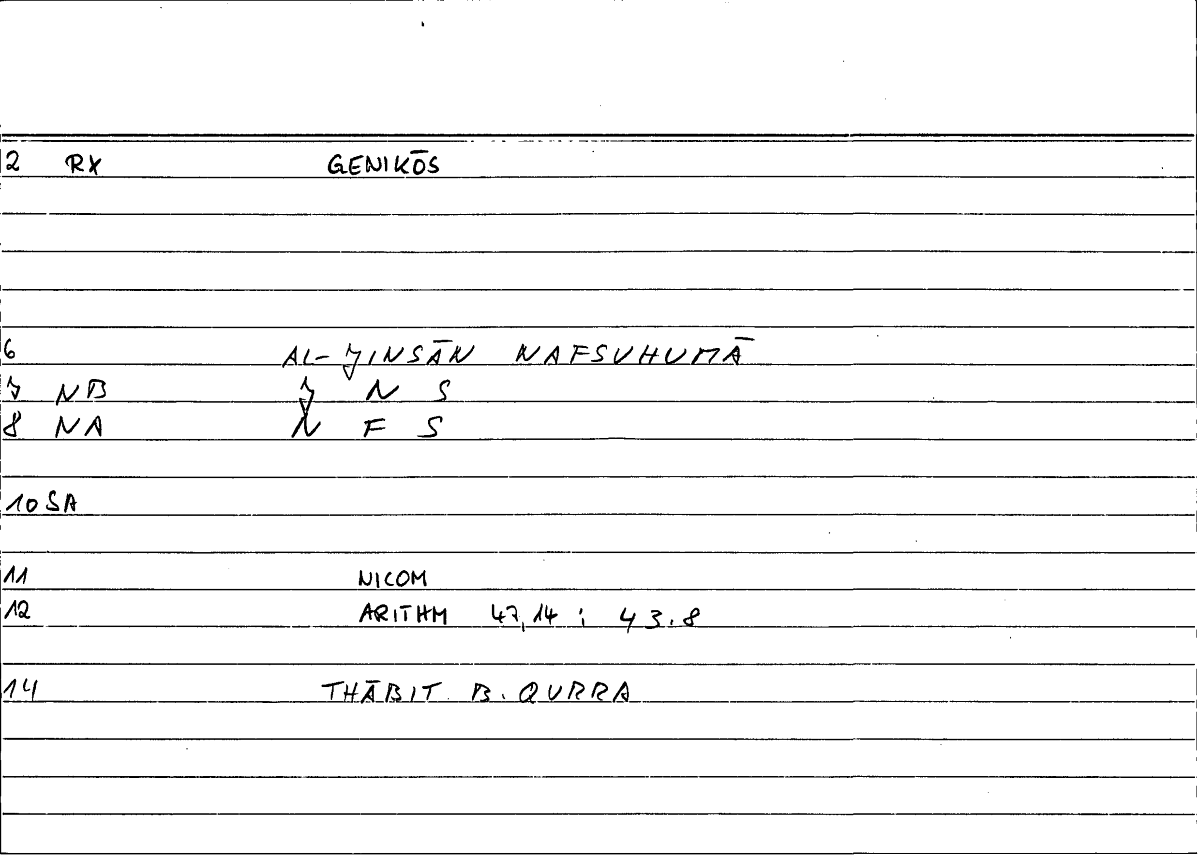 2 RX GENIKŌS
6 AL-JINSĀN NAFSUHUMĀ
7 NB J N S
8 NA N F S
10 SA
11 NICOM
12 ARITHM 47,14 : 43.8
14 THĀBIT B. QURRA